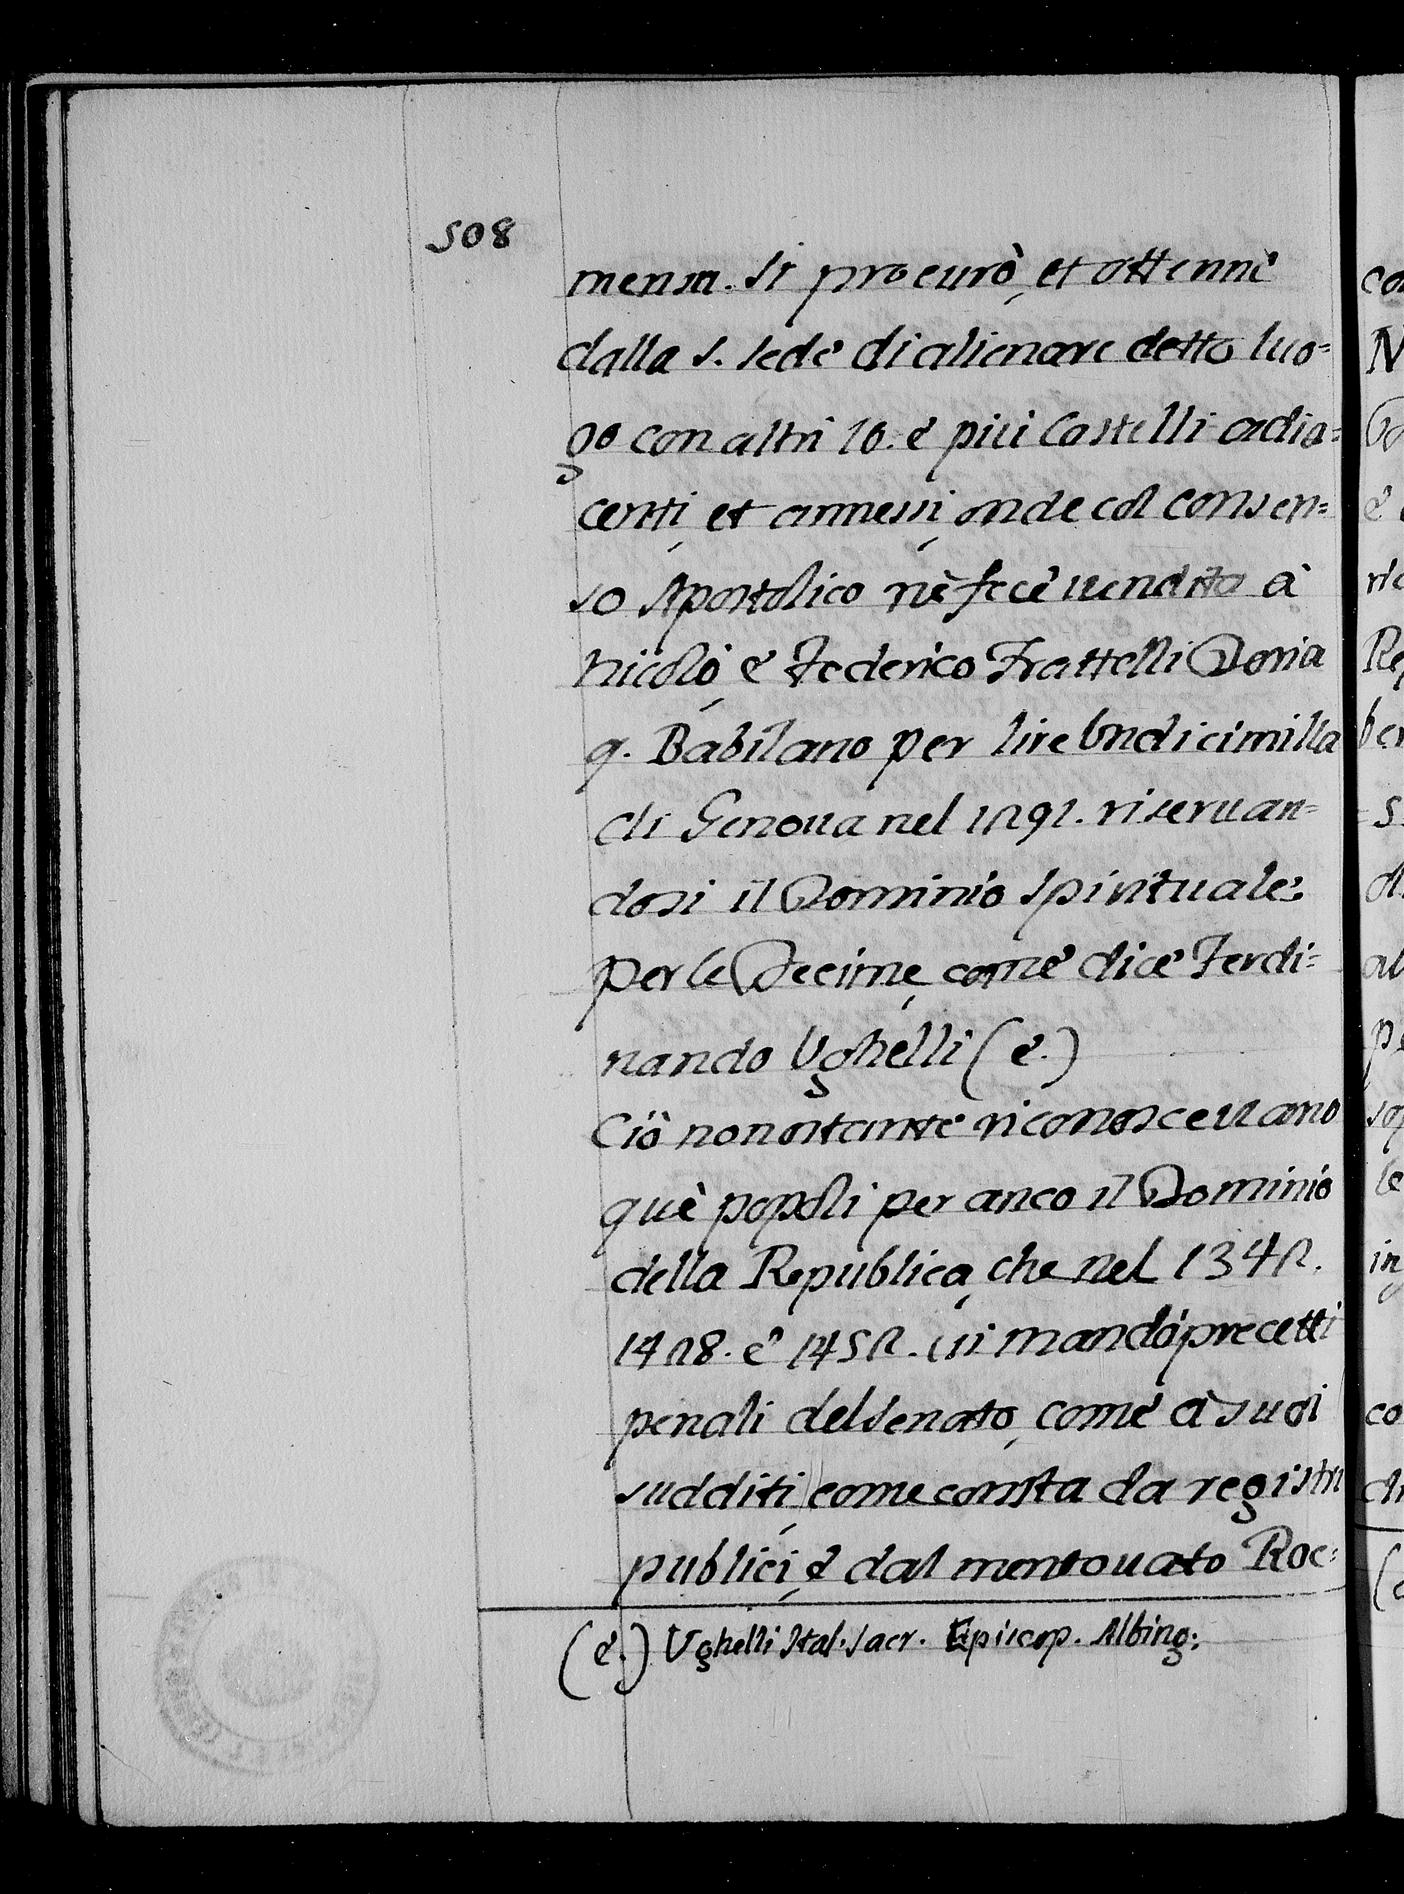 508
mensa. Si procurò, et ottennè
dalla S. Sedè di alienare detto luo=
go con altri 16. è più Castelli adia=
centi, et annessi, onde col consen=
so Apostolico nè fecè uendita à
Nicolò, è Federico Frattelli Doria
q. Babilano per lire Undicimilla
di Genoua nel 1291. riseruan=
dosi il Dominio Spirituale:
per le Decime, comè dicè Ferdi=
nando Ughelli (è.)
Ciò nonostantè riconosceuano
què popoli per anco il Dominio
della Republica, che nel 1342.
1428. è 1452. ui mandò precetti
penali del Senato, comè à suoi
sudditi, come consta da registri
publici, è dal mentouato Roc=
(è.) Ughelli Ital. Sacr. Episcop. Albing: